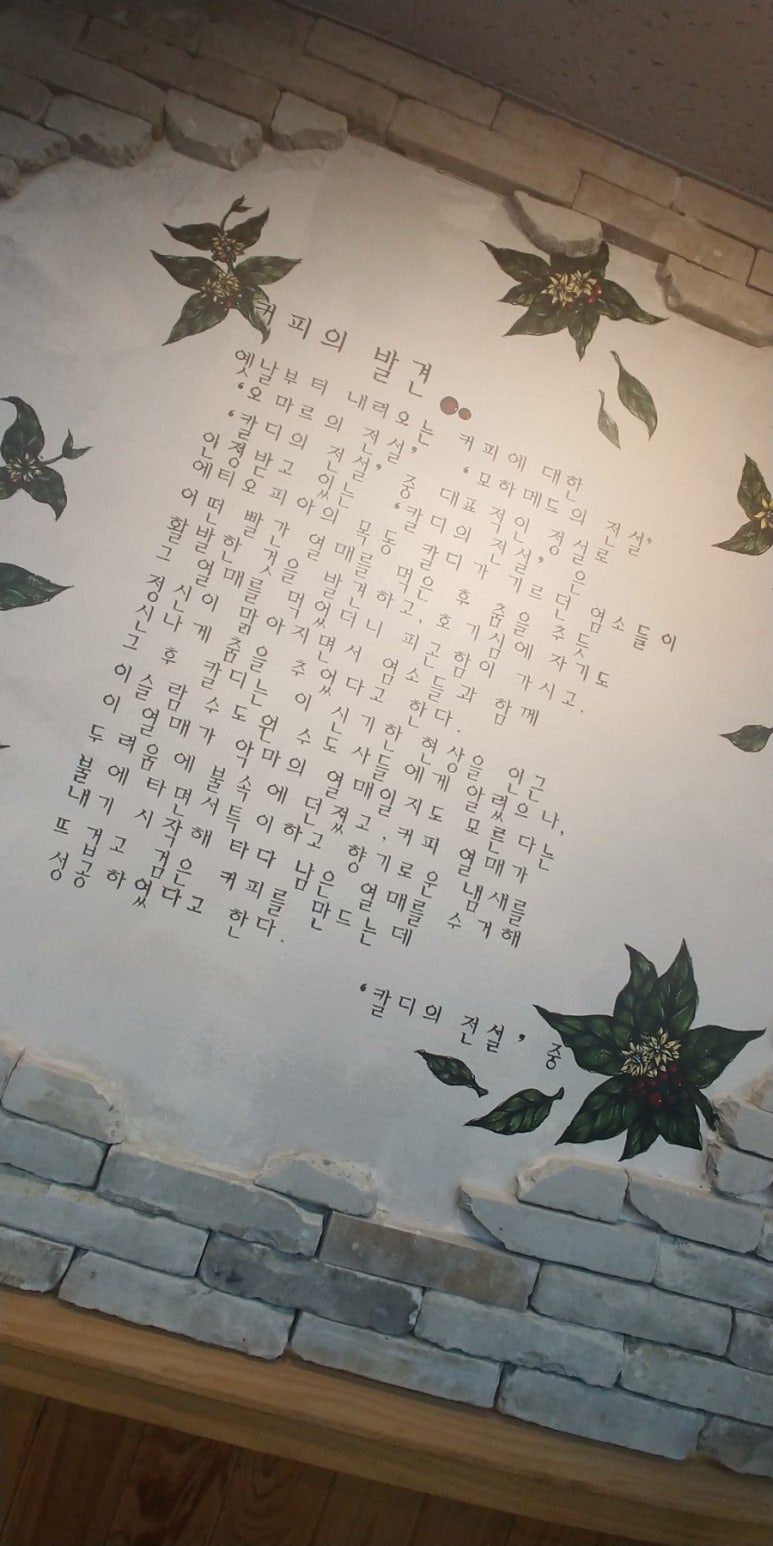 커피의 발견
옛날부터 내려오는 커피에 대한
'오마르의 전설' '모하메드의 전설'
'칼디의 전설' 중 대표적인 정설로
인정받고 있는 '칼디의 전설'은
에티오피아의 목동 칼디가 기르던 염소들이
어떤 빨간 열매를 먹은 후 춤을 추듯
활발한 것을 발견하고, 호기심에 자기도
그 열매를 먹었더니 피곤함이 가시고.
정신이 맑아지면서 염소들과 함께
신나게 춤을 추었다고 한다.
그 후 칼디는 이 신기한 현상을 인근
이슬람 수도원의 수도사들에게 알렸으나,
이 열매가 악마의 열매일지도 모른다는
두려움에 불속에 던졌고, 커피 열매가
불에 타면서 특이하고 향기로운 냄새를
내기 시작해 타다 남은 열매를 수거해
뜨겁고 검은 커피를 만드는데
성공하였다고 한다.
'칼디의 전설' 중